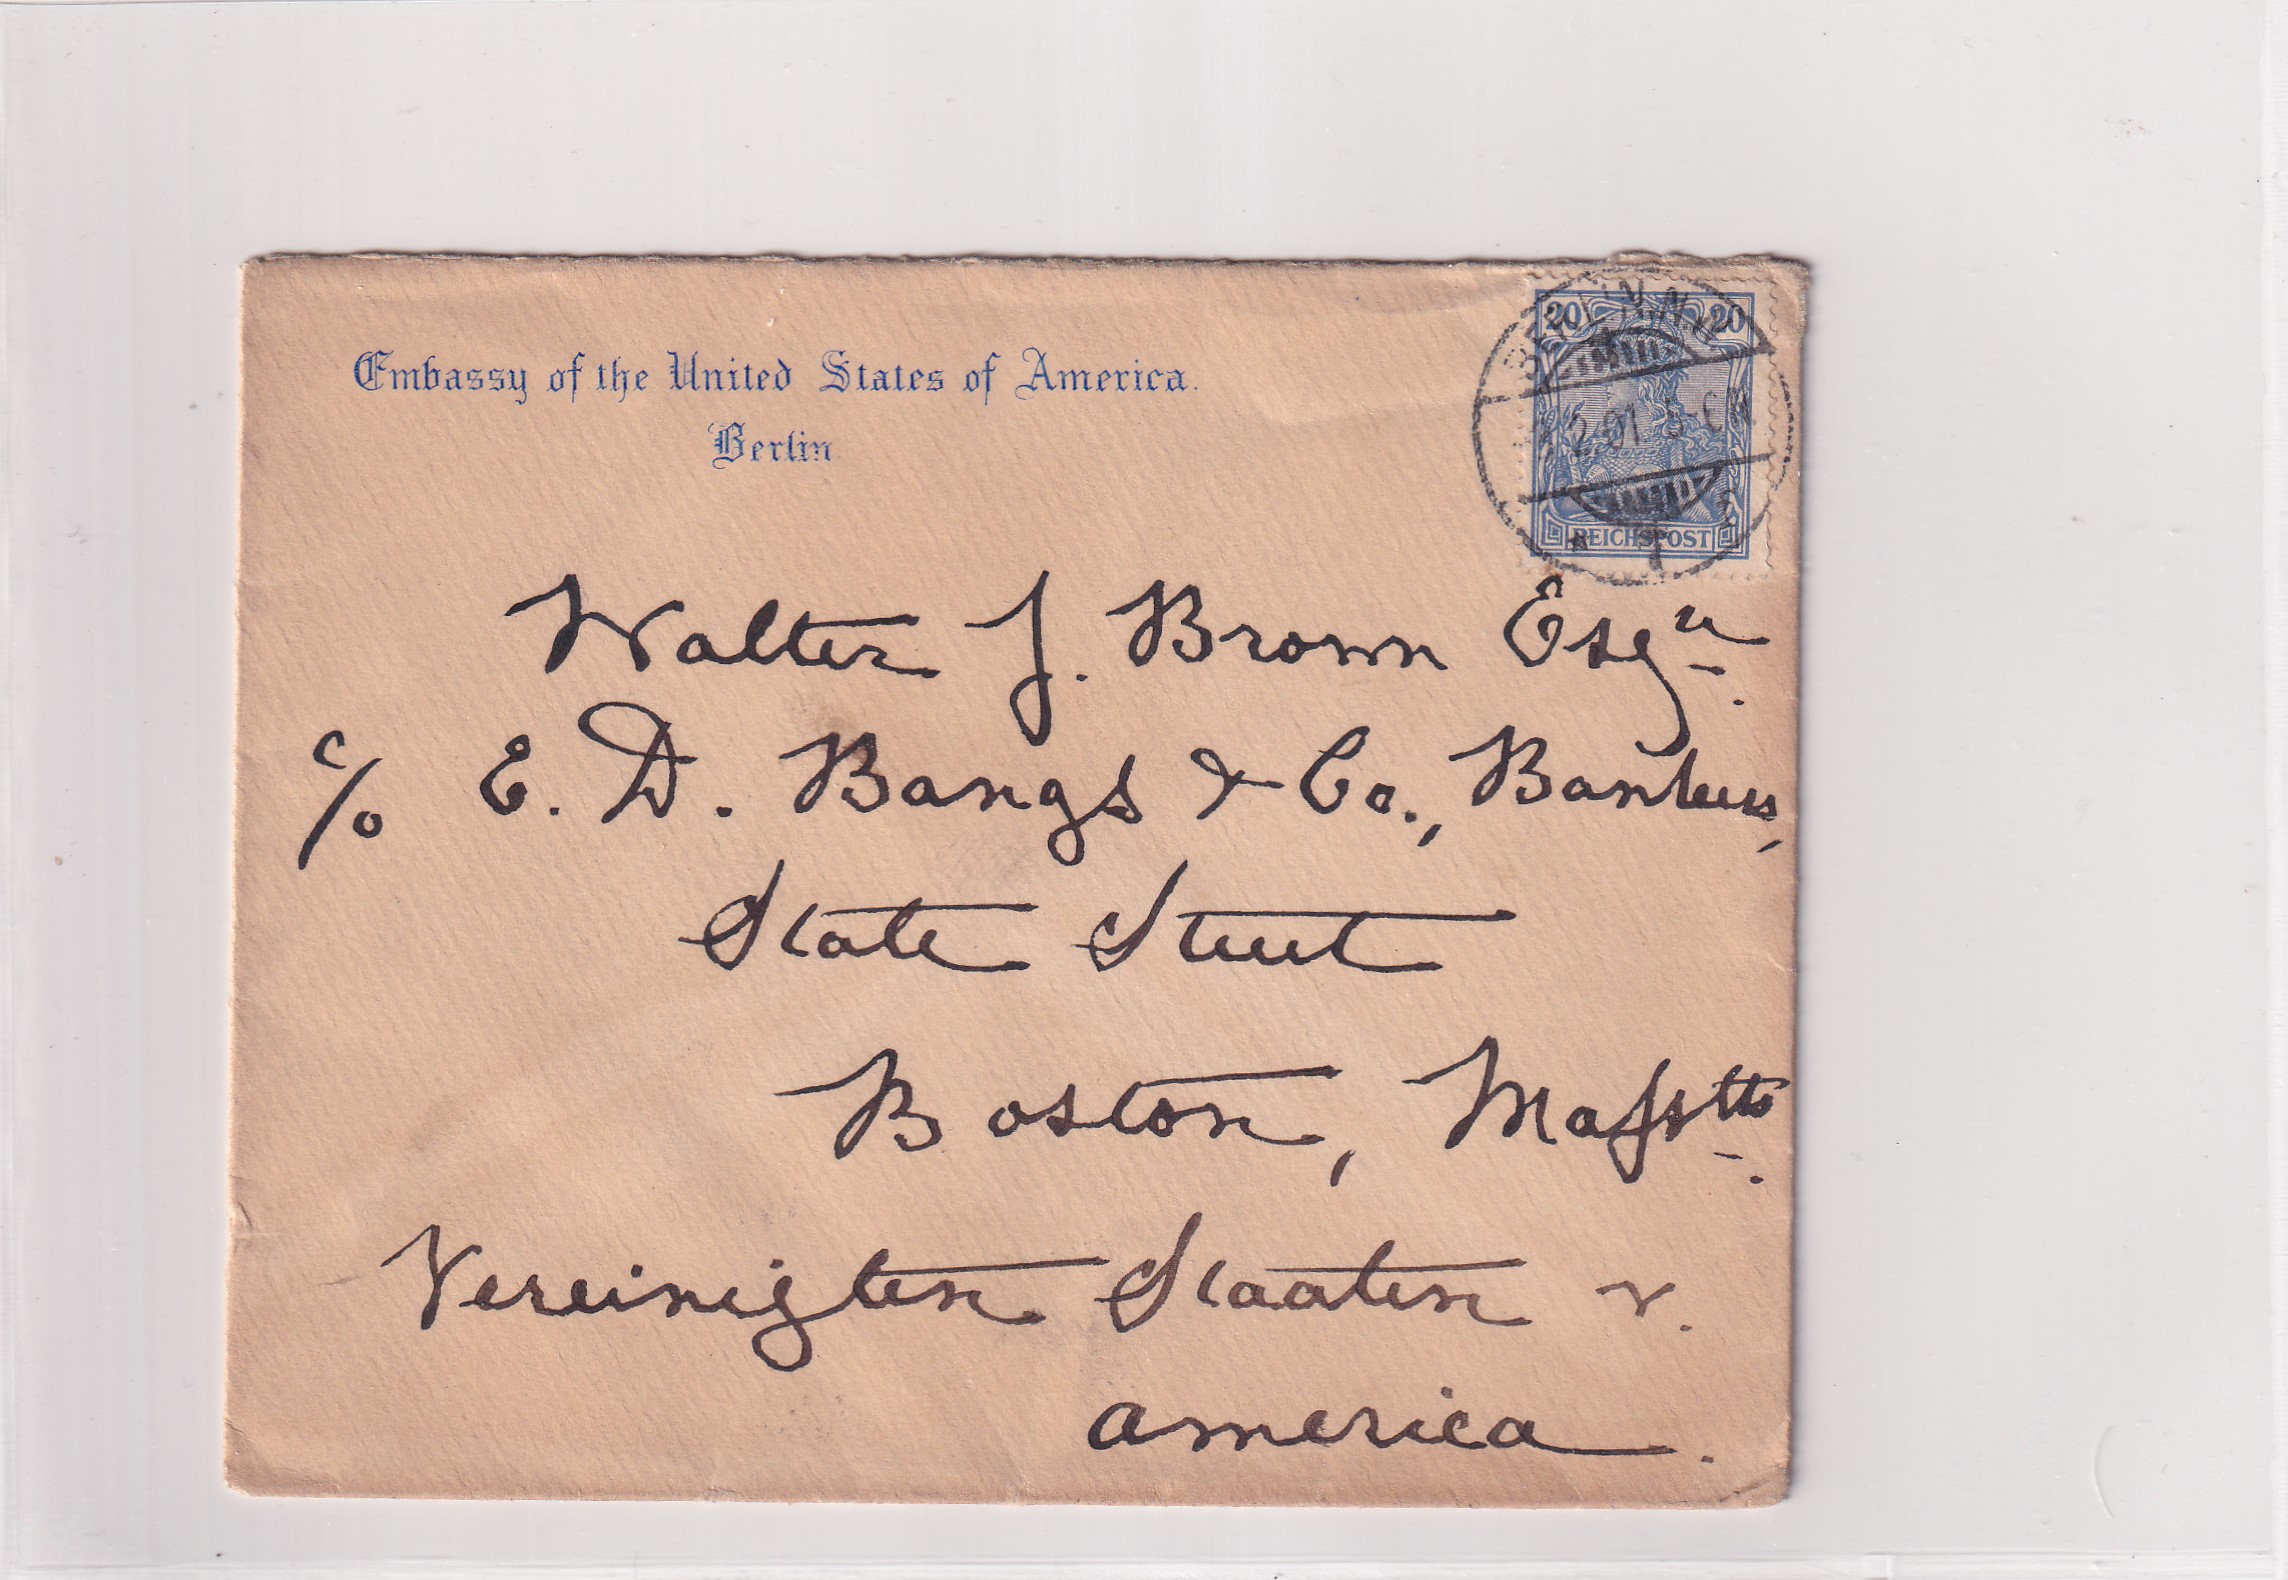 Embassy of the United States of America.
Berlin
20 20
BERLIN.N.W.
2.01 5-6N
REICHSPOST
7
Walter J. Brown Esqre.
c/o E. D. Bangs & Co., Bankers,
State Street
Boston, Masstts.
Vereinigten Staaten v.
America.